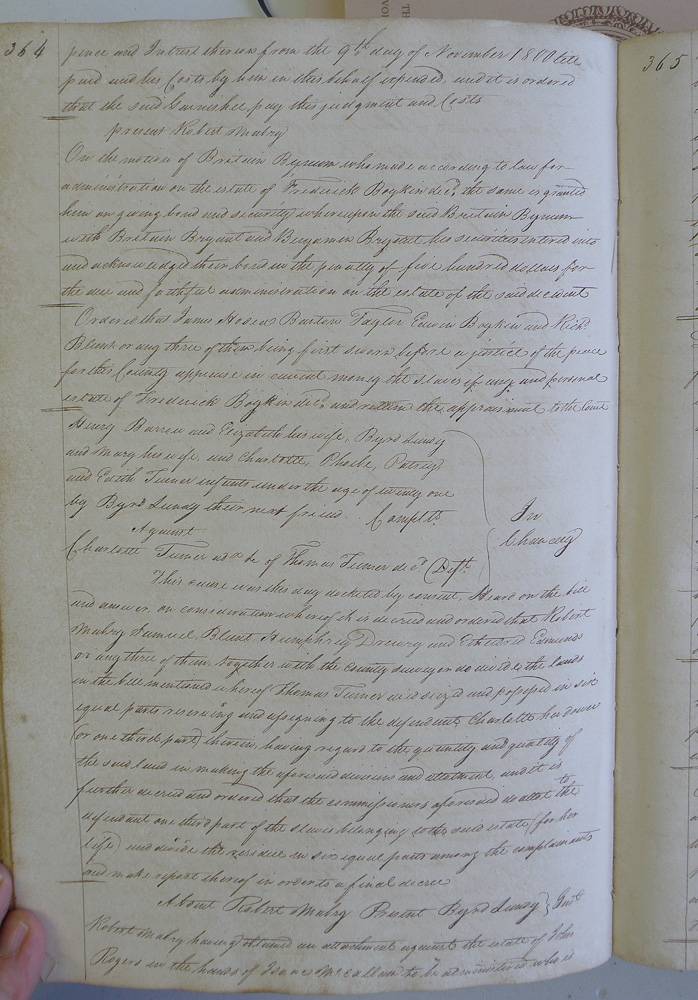 364
pence and Intrest thereon from the 9th day of November 1800 till
paid and his Costs by him in this behalf expended, and it is ordered
that the said Garnishee pay this judgment and Costs
present Robert Mabry
On the motion of Britain Bynum who made according to law for
administration on the estate of Frederick Boykin decd. the same is granted
him on giving bond and security whereupon the said Britain Bynum
with Britain Bryant and Benjamin Bryant his securities entered into
and acknowledged their bond in the penalty of five hundred dollars for
the due and faithful administration on the estate of the said decedent
Ordered that James Burton Taylor Edwin Boykin and Richd.
Blunt or any three of them being first sworn before a justice of the peace
for this County appraise in current money the slaves if any and personal
estate of Frederick Boykin decd. and return the appraisment to the Court
Henry Barrow and Elizabeth his wife, Byrd Lundy
and Mary his wife, and Charlotte, Phoebe, Patsey
and Edith Turner infants under the age of twenty one
by Byrd Lundy their next friend. Complts
Against
In
Chancery
Charlotte Turner adx &c of Thomas Turner decd. Deft.
This cause was this day docketed by consent, Heard on the bill
and answer, on consideration whereof it is decreed and ordered that Robert
Mabry Samuel Blunt Humphrey Drewry and Etheldred Edmunds
or any three of them together with the County surveyor do divide the lands
in the bill mentioned whereof Thomas Turner died seized and possessed in six
equal parts reserving and assigning to the defendant Charlotte her dower
(or one third part) therein, having regard to the quantity and quality of
the said land in making the aforesaid division and allotment, and it is
further decreed and ordered that the commissioners aforesaid do allot to the
defendant one third part of the slaves belonging to the said estate (for her
life) and divide the residue in six equal parts among the complainants
and make report thereof in order to a final decree
Absent Robert Mabry Present Byrd Lundy } Gent
Robert Mabry having obtained an attachment against the estate of John
Rogers in the hands of Isaac McCallum to be administered who is
365